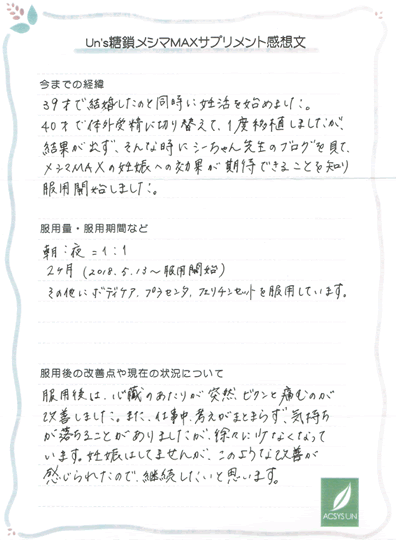 Un's糖鎖メシマMAXサプリメント感想文
今までの経緯
39才で結婚したのと同時に妊活を始めました。
40才で体外受精に切り替えて、1度移植しましたが、
結果が出ず、そんな時にシーちゃん先生のブログを見て、
メシマMAXの妊娠への効果が期待できることを知り
服用開始しました。
服用量・服用期間など
朝:夜=1:1
2ヶ月(2018.5.13~服用開始)
その他にボディケア、プラセンタ、フェリチンセットを服用しています。
服用後の改善点や現在の状況について
服用後は、心臓のあたりが突然ビクンと痛むのが
改善しました。また、仕事中、考えがまとまらず、気持ち
が落ちることがありましたが、徐々に少なくなって
います。妊娠はしてませんが、このような改善が
感じられたので、継続したいと思います。
ACSYS LIN